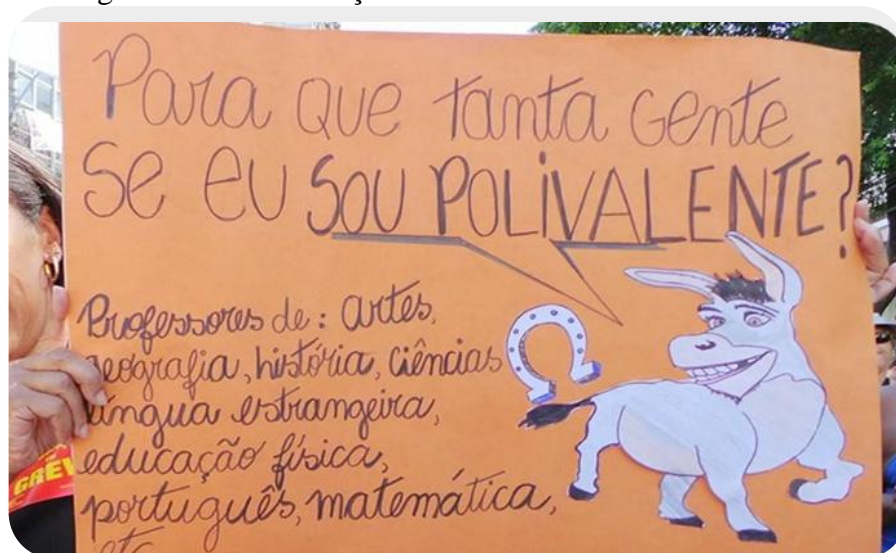 Para que tanta gente
se eu SOU POLIVALENTE?
Professores de: artes,
geografia, história, ciências
língua estrangeira,
educação física,
português, matemática,
etc
GREV